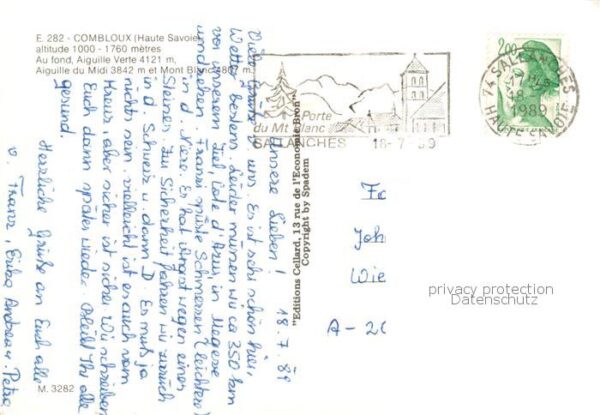 E. 282 - COMBLOUX (Haute Savoie)
altitude 1000 - 1760 mètres
Au fond, Aiguille Verte 4121 m,
Aiguille du Midi 3842 m et Mont Blanc 4807 m.
Porte
du Mt Blanc
SALLANCHES 18-7-89
74 SALLANCHES
1989
HAUTE SAVOIE
2,00
18.7.89
Unsere Lieben!
Viele Grüße v. uns. Es ist sehr schön hier,
Wetter bestens. Leider müssen wir ca 350 km
vor unserem Ziel, Cote d'Azur, in Megeve
umdrehen. Franzi müßte Schmerzen (leichtere)
in d. Niere. Es hat Angst wegen einer
Steines. Zur Sicherheit fahren wir zurück
in d. Schweiz u. dann D. Es muß ja
nichts sein, vielleicht ist es auch vom
Kreuz, aber sicher ist sicher. Wir schreiben
Euch dann später wieder. Bleibt Ihr alle
gesund.
Herzliche Grüße an Euch alle
v. Franz, Erika Andrea u. Petra
"Editions Cellard, 13 rue de l'Economie Bron"
Copyright by Spadem
Joh
Wie
A-20
privacy protection
Datenschutz
M. 3282